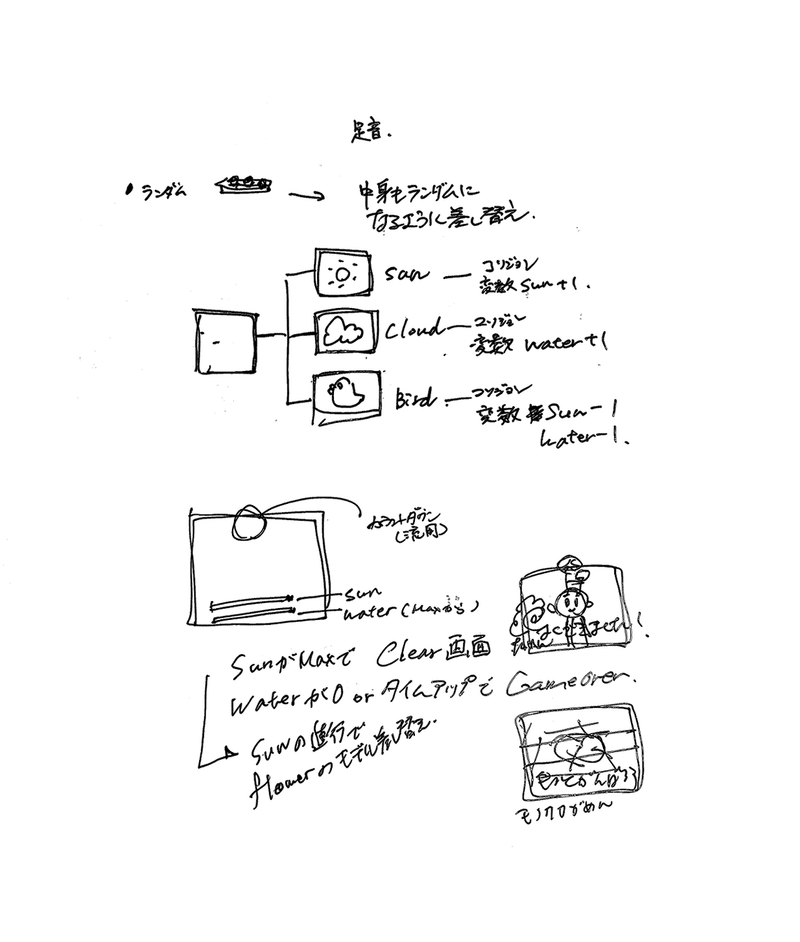 足音.
・ランダム → 中身もランダムに
なるように差し替え.
sun — コリジョン
変数 sun+1.
Cloud — コリジョン
変数 water+1
Bird — コリジョン
変数 Sun-1
water-1.
カウントダウン
(活用)
sun
water (Maxから)
SunがMaxで Clear画面
Waterが0 or タイムアップで Gameover.
Sunの進行で
flowerのモデル差し替え.
はくできました!
もっとがんばろう
モノクロがめん